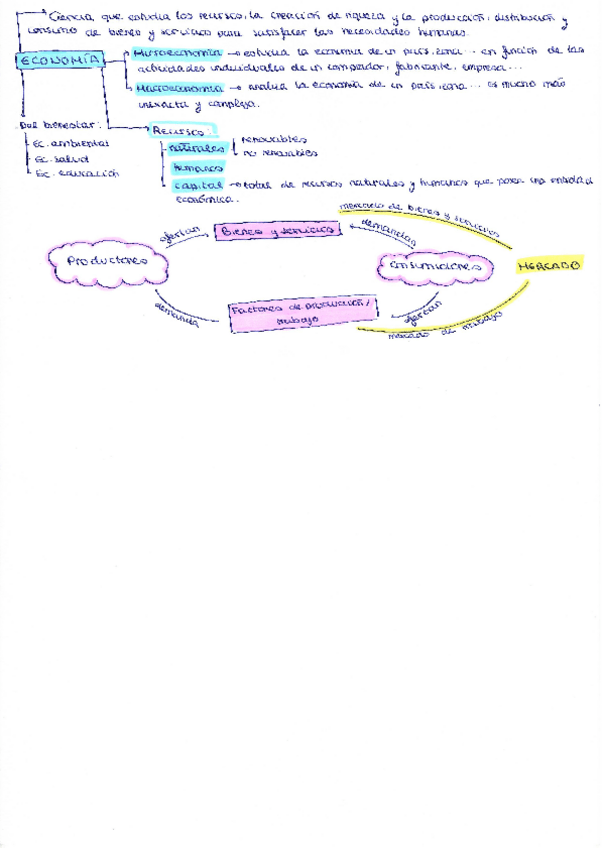 Ciencia que estudia los recursos, la creación de riqueza y la producción, distribución y
consumo de bienes y servicios para satisfacer las necesidades humanas.
ECONOMÍA
Microeconomía → estudia la economía de un país, zona... en función de las
actividades individuales de un comprador, fabricante, empresa...
Macroeconomía → analiza la economía de un país, zona... Es mucho más
inexacta y compleja.
Del bienestar:
Ec. ambiental
Ec. salud
Ec. educación
Recursos:
naturales
renovables
no renovables
humanos
capital → total de recursos naturales y humanos que posee una entidad
económica.
mercado de bienes y servicios
ofertan
Bienes y servicios
demandas
Productores
Consumidores
MERCADO
demanda
Factores de producción /
trabajo
ofertan
mercado de trabajo